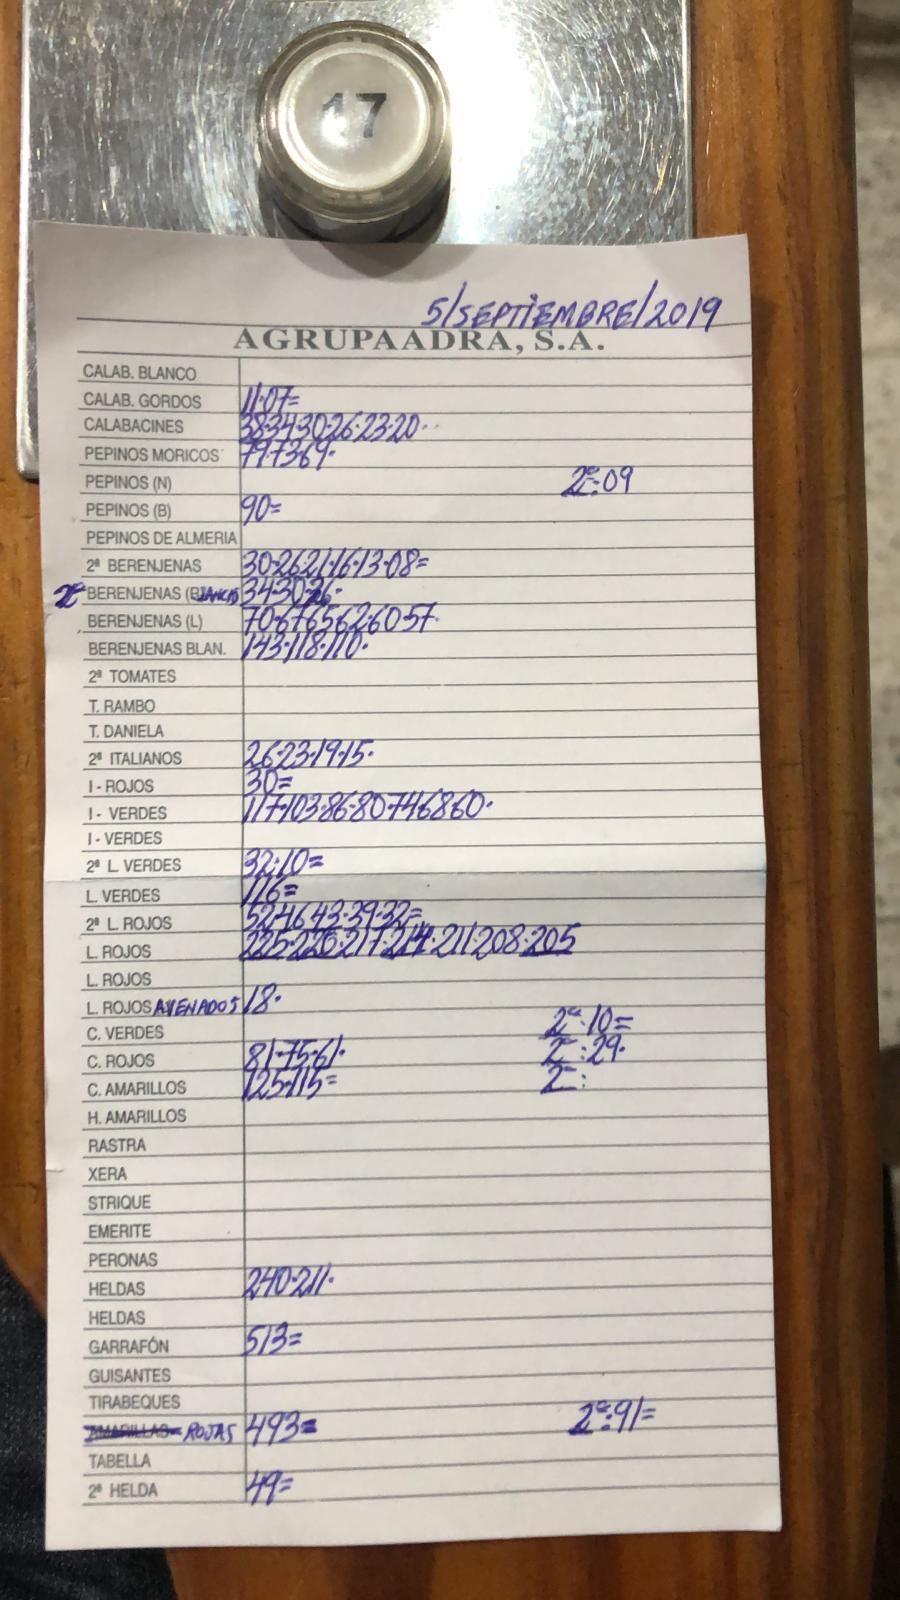 17
5/SEPTIEMBRE/2019
AGRUPAADRA, S.A.
CALAB. BLANCO
CALAB. GORDOS 11·07=
CALABACINES 38·34·30·26·23·20··
PEPINOS MORICOS 79·73·69·
PEPINOS (N) 2ª:09
PEPINOS (B) 90=
PEPINOS DE ALMERIA
2ª BERENJENAS 30·26·21·16·13·08=
2ª BERENJENAS (BLANCAS 34·30·26·
BERENJENAS (L) 70·67·65·62·60·57·
BERENJENAS BLAN. 143·118·110·
2ª TOMATES
T. RAMBO
T. DANIELA
2ª ITALIANOS 26·23·19·15·
I - ROJOS 30=
I - VERDES 117·103·86·80·74·68·60·
I - VERDES
2ª L. VERDES 32·10=
L. VERDES 116=
2ª L. ROJOS 52·46·43·39·32=
L. ROJOS 225·220·217·214·211·208·205
L. ROJOS
L. ROJOS AVENADOS 18·
C. VERDES 2ª:10=
C. ROJOS 81·75·61· 2ª:29·
C. AMARILLOS 125·115= 2ª:
H. AMARILLOS
RASTRA
XERA
STRIQUE
EMERITE
PERONAS
HELDAS 240·211·
HELDAS
GARRAFÓN 513=
GUISANTES
TIRABEQUES
AMARILLAS ROJAS 493= 2ª:91=
TABELLA
2ª HELDA 49=